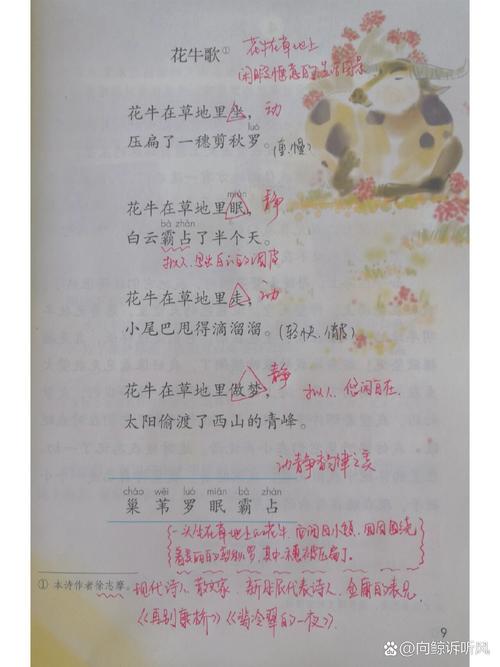 花牛歌① 花牛在草地上
闲暇惬意的生活图景
花牛在草地里坐，动
luó
压扁了一穗剪秋罗。(重、慢)
mián
花牛在草地里眠，静
bà zhàn
白云霸占了半个天。
拟人
花牛在草地里走，动
小尾巴甩得滴溜溜。(轻快、俏皮)
花牛在草地里做梦，静 拟人 悠闲自在
太阳偷渡了西山的青峰。
动静韵律之美
cháo wěi luó mián bà zhàn
巢 苇 罗 眠 霸 占
一头坐在草地上的花牛，
其中一穗被压扁了。
① 本诗作者徐志摩。现代诗人、散文家、新月派代表诗人，金庸的表兄
《再别康桥》《翡冷翠的一夜》
9
@向鲸诉听风